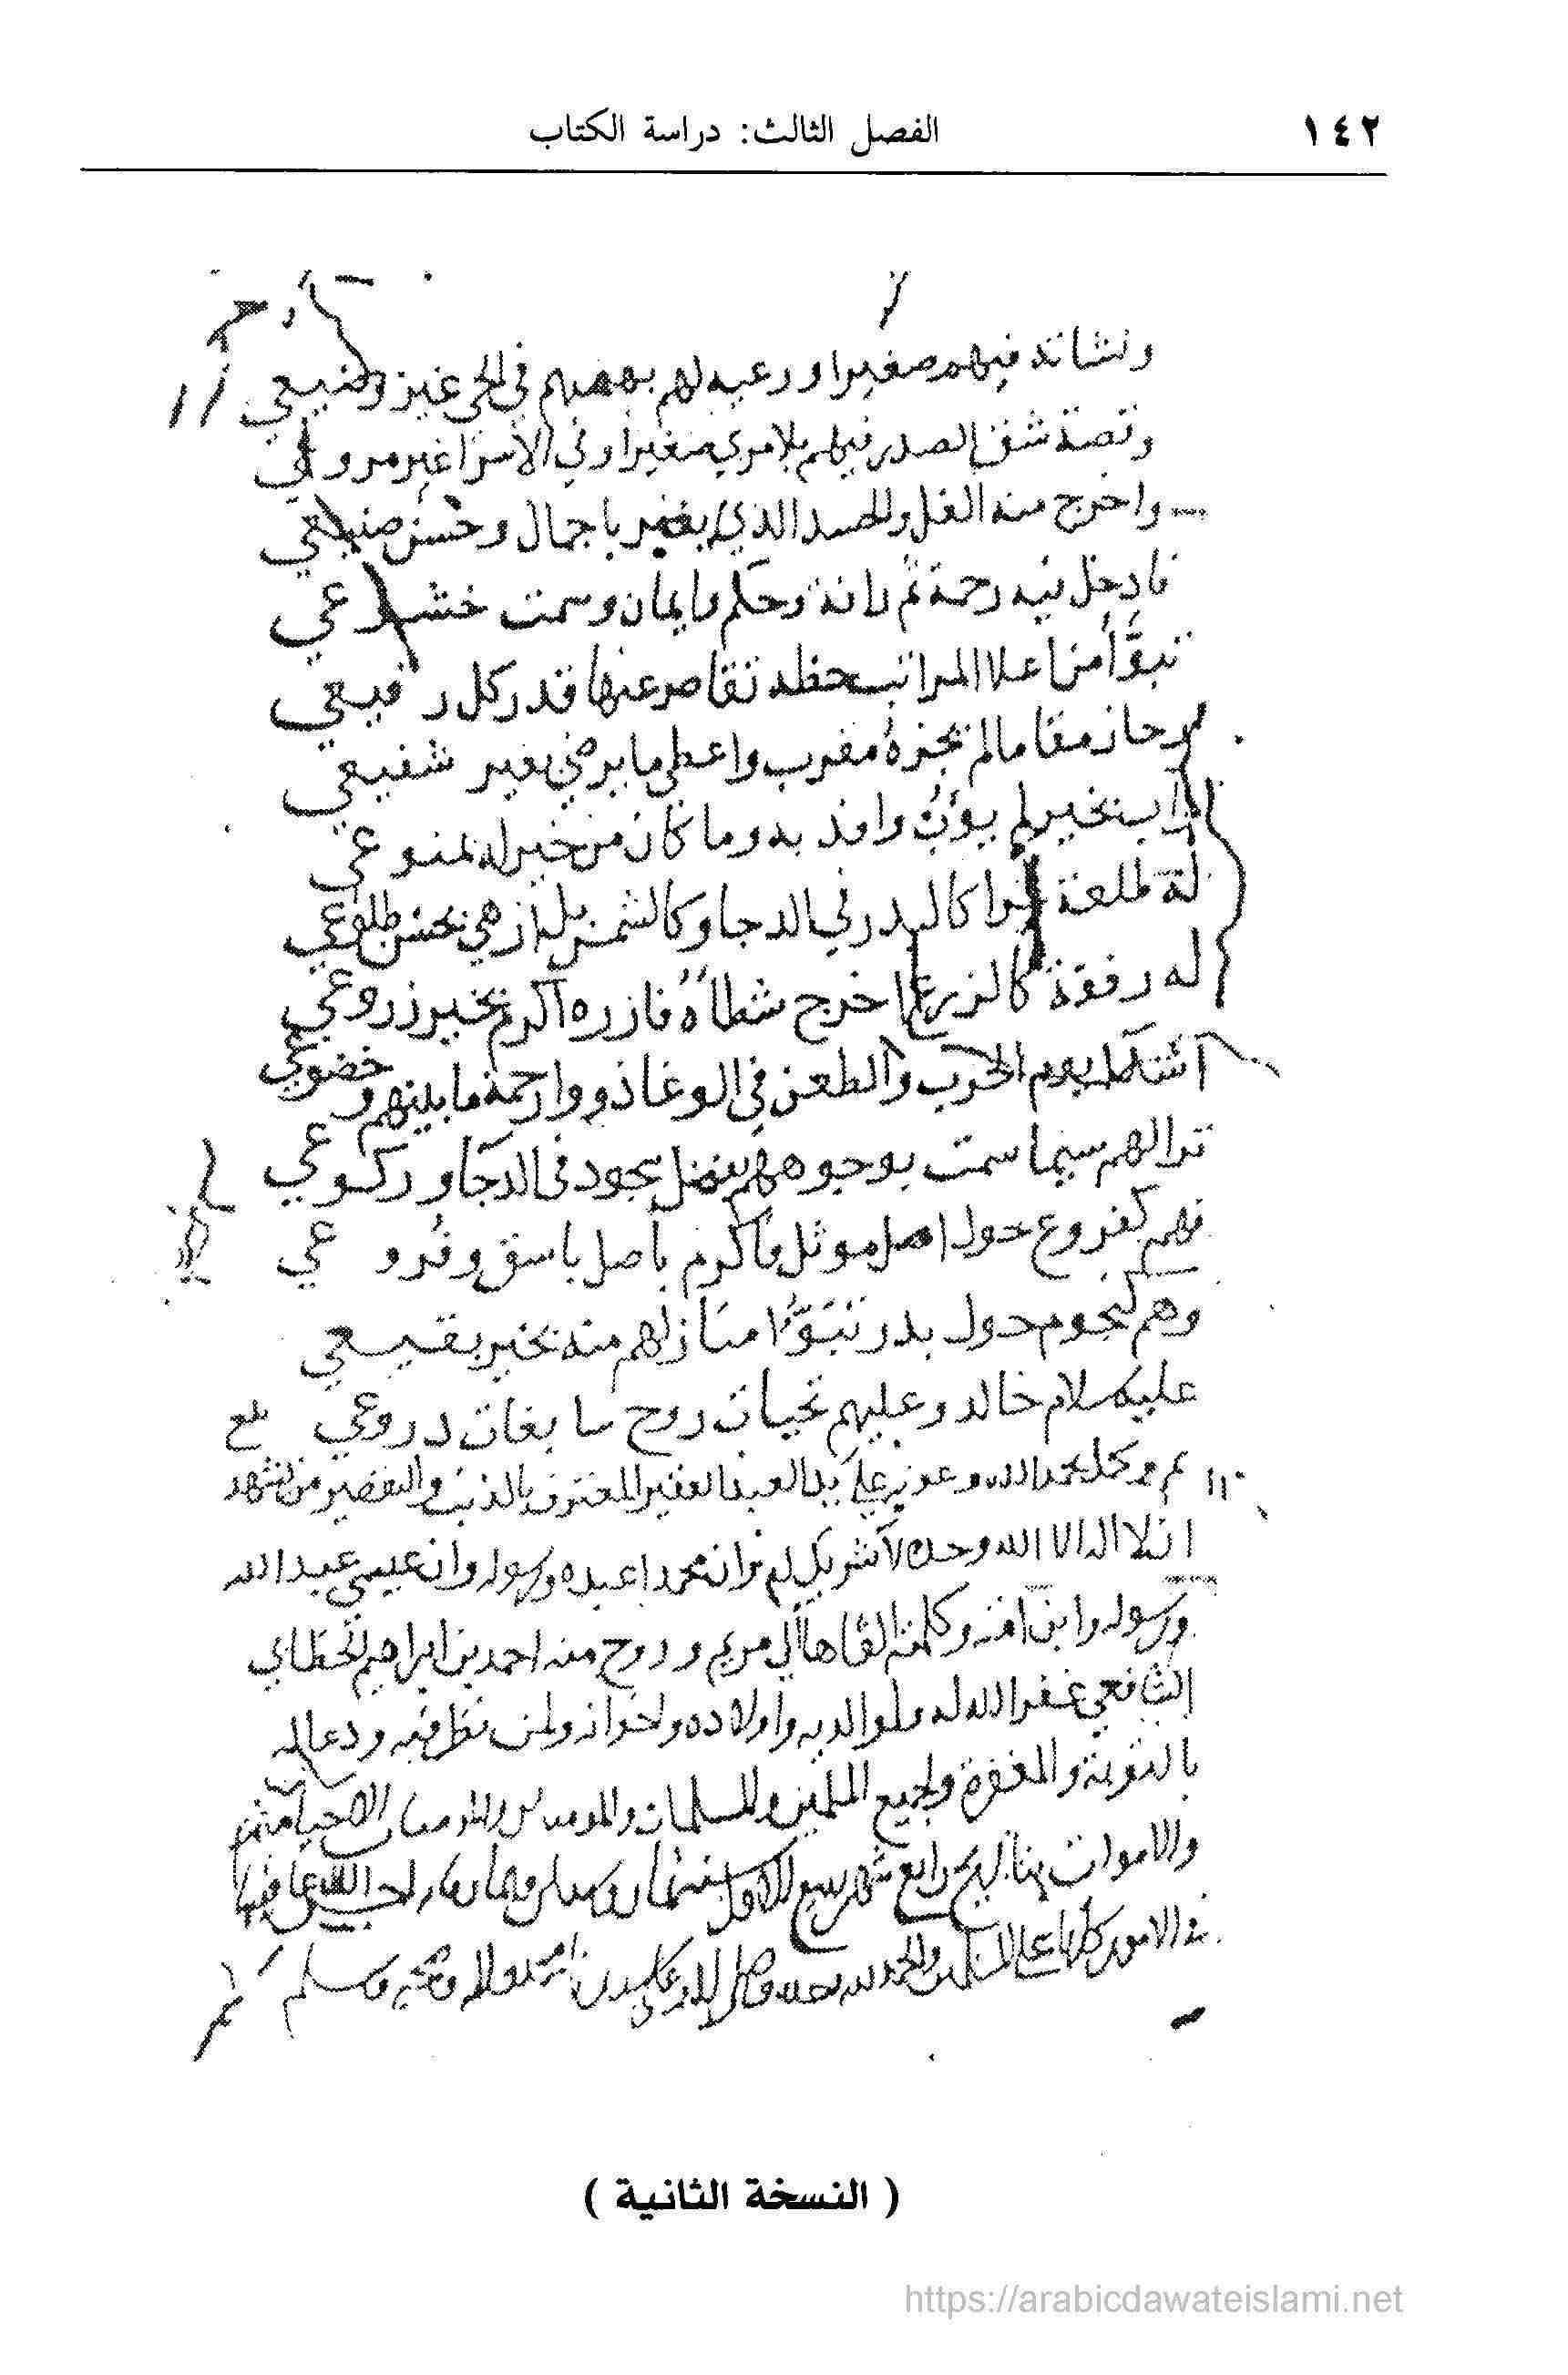 ١٤٢
الفصل الثالث: دراسة الكتاب
ونشاته فيهم صغيرا ورعيه لهم بهمهم في الحي غير وضيعي
وقصة شق الصدر فيهم بلا مرى صغيرا وفي الاسرا غير مروعي
واخرج منه الغل والحسد الذي بغير باجمال وحسن صنيعي
فادخل فيه رحمة ثم رافة وحكم وايمان وسمت خشوعي
تبوأ من اعلا المراتب خطه تقاصر عنها قدر كل رفيعي
وحاز مقاما لم يجزه مقرب واعطى ما يرضى بغير شفيعي
بخير لم يؤب وافد به وما كان من خير له بمنوعي
له طلعة غرا كالبدر في الدجا وكالشمس بل ازهى بحسن طلوعي
له رفقة كالزرع اخرج شطأه فازره اكرم بخير زروعي
أشدا يوم الحرب والطعن في الوغا ذووا رحمة ما بينهم وخضوعي
ترا لهم سيما سمت بوجوههم بفضل سجود في الدجا وركوعي
فهم كفروع حول اصل موثل فأكرم بأصل باسق وفروعي
وهم كنجوم حول بدر تبوؤا منازلهم منه بخير بقيعي
عليه سلام خالد وعليهم تحيات روح سابغات دروعي بلغ
تم وكمل بحمد الله وعونه على يد العبد الفقير المعترف بالذنب والتقصير من تشهد
ان لا اله الا الله وحده لا شريك له وان محمدا عبده ورسوله وان عيسى عبد الله
ورسوله وابن امته وكلمته القاها الى مريم وروح منه احمد بن ابراهيم
الشافعي غفر الله له ولوالديه واولاده واخوانه ولمن نظر فيه ودعا له
بالتوبة والمغفرة ولجميع المسلمين والمسلمات والمومنين والمومنات الاحيا منهم
والاموات بتاريخ رابع شهر ربيع الاول سنة ثمان احسن الله عاقبتها
في الامور كلها والحمد لله وحده وصلى الله على سيدنا محمد واله وصحبه وسلم
( النسخة الثانية )
https://arabicdawateislami.net